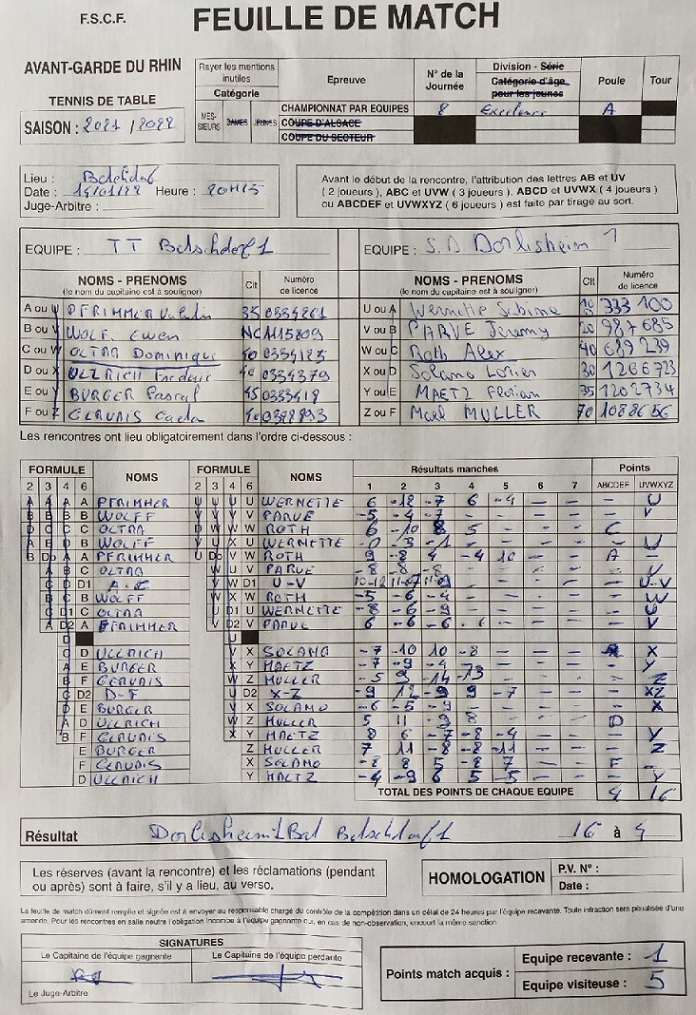 F.S.C.F. FEUILLE DE MATCH
AVANT-GARDE DU RHIN
TENNIS DE TABLE
SAISON : 2021 / 2022
Rayer les mentions inutiles
Catégorie
MESSIEURS DAMES JEUNES
Epreuve
CHAMPIONNAT PAR EQUIPES
COUPE D'ALSACE
COUPE DU SECTEUR
N° de la Journée
8
Division - Série
Catégorie d'âge pour les jeunes
Excellence
Poule
A
Tour
Lieu : Betschdorf
Date : 14/01/22 Heure : 20H15
Juge-Arbitre :
Avant le début de la rencontre, l'attribution des lettres AB et UV
( 2 joueurs ), ABC et UVW ( 3 joueurs ). ABCD et UVWX ( 4 joueurs )
ou ABCDEF et UVWXYZ ( 6 joueurs ) est faite par tirage au sort.
EQUIPE : TT Betschdorf 1
EQUIPE : S.D. Dorlisheim 1
NOMS - PRENOMS Clt Numéro de licence
(le nom du capitaine est à souligner)
NOMS - PRENOMS Clt Numéro de licence
(le nom du capitaine est à souligner)
A ou U PFRIMMER Valentin 35 U ou A Wernette 333 100
B ou V WOLF. Ewen NC V ou B PARVE Jeremy 20 987685
C ou W OLTRA Dominique W ou C Roth Alex 40 689239
D ou X ULLRICH X ou D Solano 30 1266723
E ou Y BURGER Pascal 45 0333419 Y ou E MAETZ Florian 35 1202734
F ou Z GERVAIS Z ou F Mael MULLER 70 1088656
Les rencontres ont lieu obligatoirement dans l'ordre ci-dessous :
FORMULE NOMS FORMULE NOMS Résultats manches Points
2 3 4 6 2 3 4 6 1 2 3 4 5 6 7 ABCDEF UVWXYZ
A PFRIMMER U WERNETTE 6 -12 -7 6 -4 — — U
B WOLFF V PARVE -5 -4 -7 — — — — V
C OLTRA W ROTH 6 -10 8 5 — — — C
B WOLFF U WERNETTE -0 -3 -1 — — — — U
A PFRIMMER W ROTH 9 -8 4 -4 10 — — A —
C OLTRA V PARVE -8 -8 -8 — — — — V
D1 A-C D1 U-V 10-12 11-09 — — — — U-V
B WOLFF W ROTH -5 -6 -4 — — — — W
C OLTRA U WERNETTE -8 -6 -9 — — — — U
A PFRIMMER V PARVE 6 -6 -6 -6 — — — V
D ULLRICH X SOLANO -7 -10 10 -8 — — — X
E BURGER Y MAETZ -7 -9 -4 — — — Y
F GERVAIS Z MULLER -5 9 -14 -13 — — — Z
D2 D-F D2 X-Z -9 12 -9 9 -7 — — XZ
E BURGER X SOLANO -6 -5 -9 — — — — X
D ULLRICH Z MULLER 5 11 -9 8 — — — D
F GERVAIS Y MAETZ 8 6 -7 -8 -4 — — Y
E BURGER Z MULLER 7 11 -8 -8 -11 — — Z
F GERVAIS X SOLANO -8 8 5 -8 7 — — F —
D ULLRICH Y MAETZ -4 -9 6 5 -5 — — Y
TOTAL DES POINTS DE CHAQUE EQUIPE 4 16
Résultat Dorlisheim 1 Bat Betschdorf 1 16 à 4
Les réserves (avant la rencontre) et les réclamations (pendant
ou après) sont à faire, s'il y a lieu, au verso.
HOMOLOGATION
P.V. N° :
Date :
La feuille de match dûment remplie et signée est à envoyer au responsable chargé du contrôle de la compétition dans un délai de 24 heures par l'équipe recevante. Toute infraction sera pénalisée d'une
amende. Pour les rencontres en salle neutre l'obligation incombe à l'équipe gagnante qui, en cas de non-observation, encourt la même sanction
SIGNATURES
Le Capitaine de l'équipe gagnante Le Capitaine de l'équipe perdante
Le Juge-Arbitre
Points match acquis :
Equipe recevante : 1
Equipe visiteuse : 5